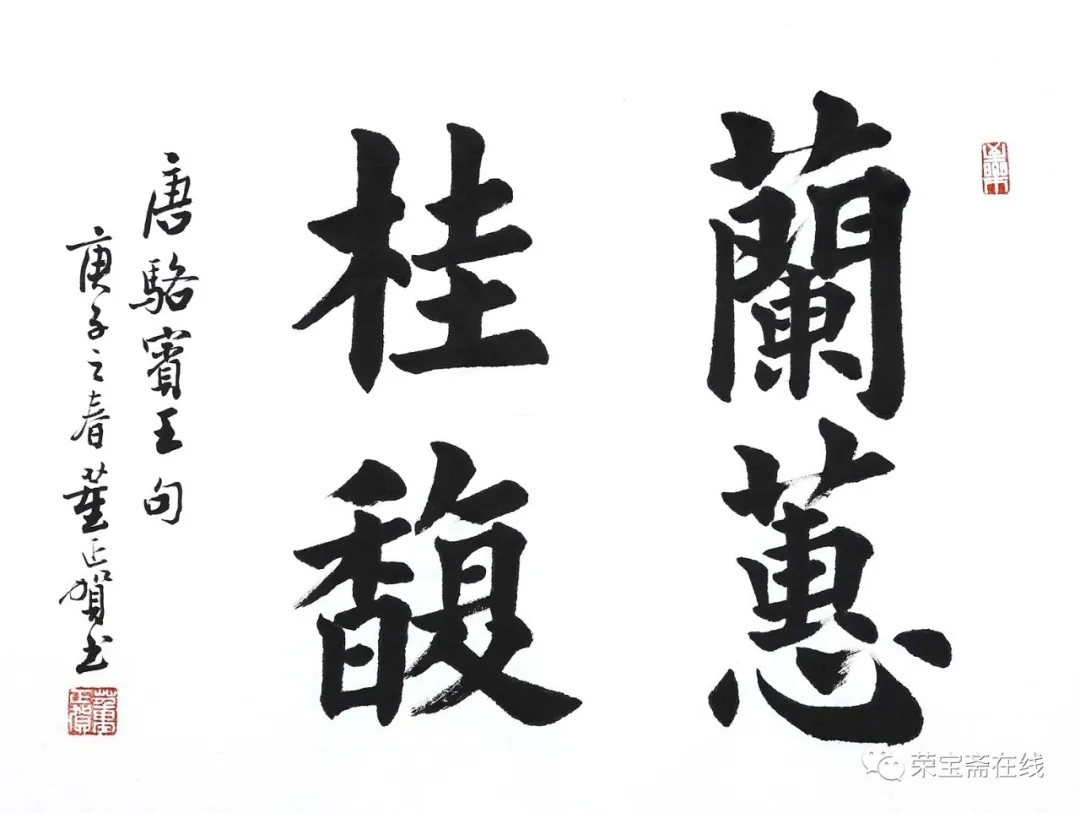 蘭蕙
桂馥
唐駱賓王句
庚子之春董正賀书
董正賀
荣宝斋在线